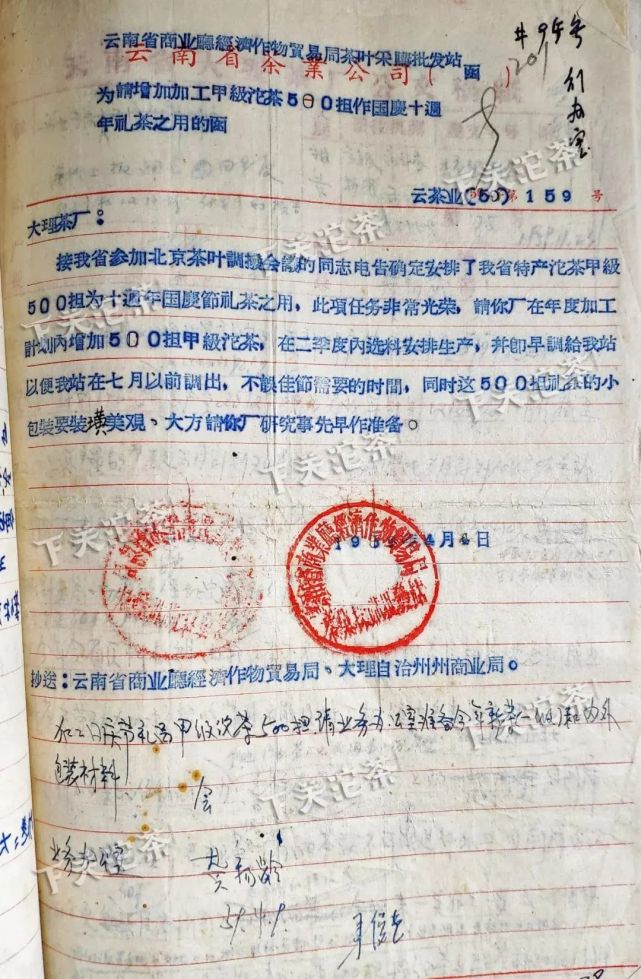 #95号
云南省商业廳經濟作物貿易局茶叶采購批发站
云南省茶業公司（ ）函
为請增加加工甲級沱茶500担作国慶十週
年礼茶之用的函
云茶业(59)第159号
大理茶厂：
接我省参加北京茶叶調撥会議的同志电告确定安排了我省特产沱茶甲級
500担为十週年国慶節礼茶之用，此項任务非常光荣，請你厂在年度加工
計划內增加500担甲級沱茶，在二季度內选料安排生产，并卽早調給我站
以便我站在七月以前調出，不誤佳節需要的时間，同时这500担礼茶的小
包裝要裝璜美观、大方請你厂研究事先早作准备。
4月4日
抄送：云南省商业廳經濟作物貿易局、大理自治州州商业局。
包装材料
业务办公室
59.4.9.
下关沱茶